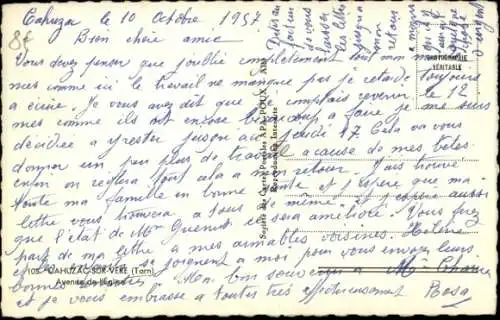 Cahuzac le 10 Octobre 1957
8f
Bien chère amie
Vous devez penser que j'oublie complètement tout mon
mes comme ici le travail ne manque pas je retarde toujours
a écrire. Je vous avez dit que je comptais revenir le 12
mes comme ils ont encore beaucoup a faire je me suis
décidée a y rester jusqu'au jeudi 17 Cela va vous
donner un peu plus de travail a cause de mes bêtes
enfin on reglera tout cela a mon retour. J'ai trouvé
toute ma famille en bonne santé et j'espère que ma
lettre vous trouvera a tous de même, et j'espère aussi
que l'état de Mr Guenet se sera amélioré. Vous ferez
part de ma lettre a mes aimables voisines. Hélène
se joignent a moi pour vous envoyer leurs
bonnes Ma Bon souvenir a Mme
et je vous embrasse a toutes très affectueusement Rosa
Dites au
facteur
de vous
laisser
les lettres
jusqu'a
mon
retour
a moins
qu'il y
CARTE
VÉRITABLE
Société des Cartes Postales APA-POUX - ALBI
Reproduction Interdite
105 - CAHUZAC-SUR-VÈRE (Tarn)
Avenue de l'Église